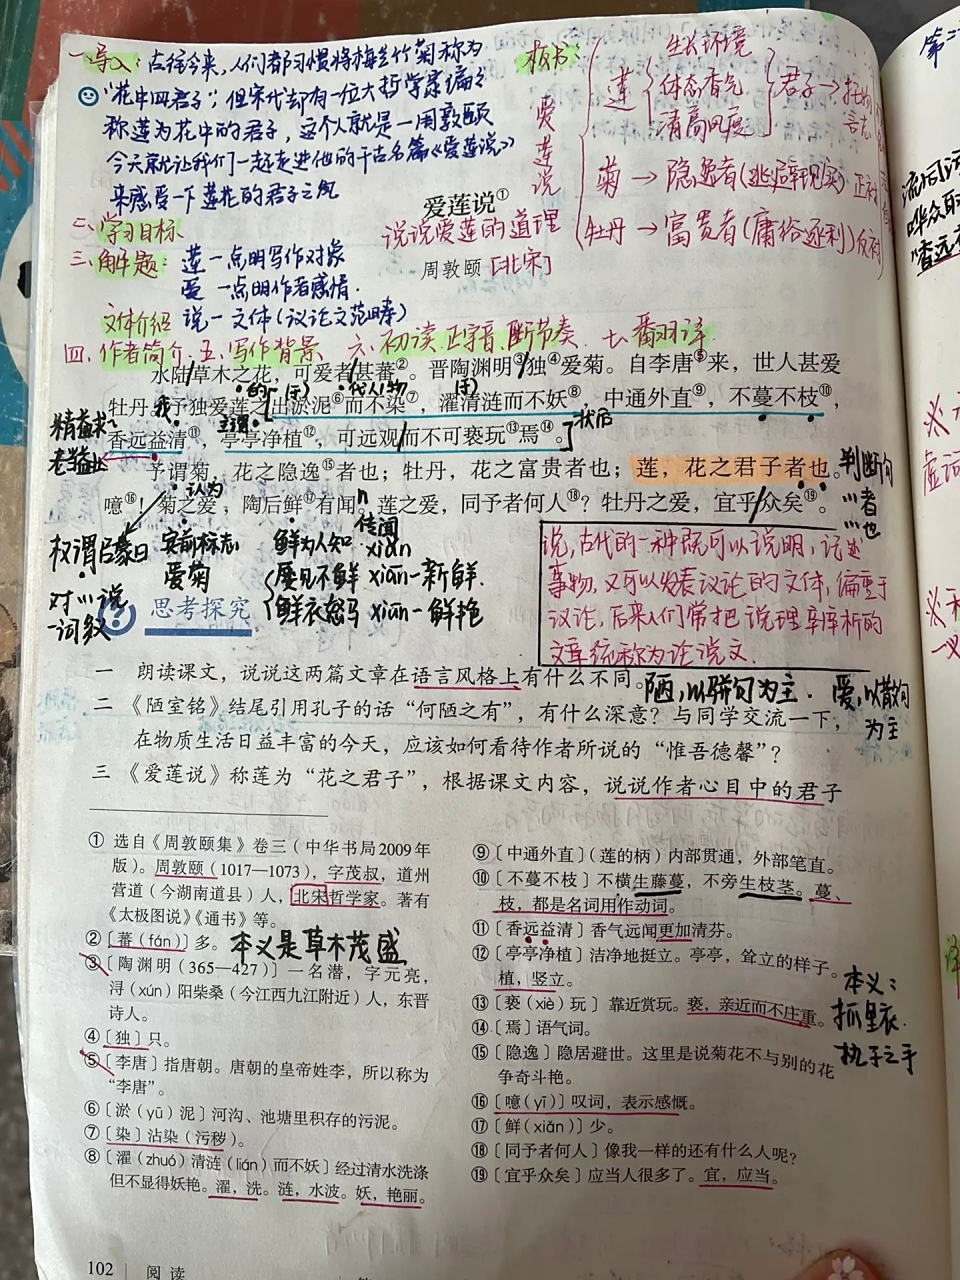 一.导入:古往今来,人们都习惯将梅兰竹菊称为
"花中四君子",但宋代却有一位大哲学家偏偏
称莲为花中的君子,这个人就是一周敦颐
今天就让我们一起走进他的千古名篇《爱莲说》
来感受一下莲花的君子之气
二、学习目标
三.解题:莲一点明写作对象
爱一点明作者感情.
文体介绍 说一文体(议论文范畴)
四.作者简介.五.写作背景 六.初读.正字音.断节奏. 七.翻译.
板书:
爱莲说
莲
生长环境
体态香气
清高风度
君子→托物言志
菊→隐逸者(逃避现实)正衬
牡丹→富贵者(庸俗逐利)反衬
爱莲说①
说说爱莲的道理
周敦颐[北宋]
水陆/草木之花,可爱者/甚蕃②。晋陶渊明③/独④爱菊。自李唐⑤来,世人甚爱
的
代人1物
牡丹。予独爱莲之出淤泥⑥而不染⑦,濯清涟而不妖⑧,中通外直⑨,不蔓不枝⑩,
我
主谓
状后
香远益清⑪,亭亭净植⑫,可远观/而不可亵玩⑬焉⑭。
精益求~
老益壮
予谓菊,花之隐逸⑮者也;牡丹,花之富贵者也;莲,花之君子者也。
判断句
…者
…也
认为
噫⑯!菊之爱,陶后鲜⑰有闻。莲之爱,同予者何人⑱?牡丹之爱,宜乎/众矣⑲。
传闻
权谓启蒙曰
对…说
一词多义
宾前标志
爱菊
鲜为人知 xiǎn
屡见不鲜 xiān一新鲜.
鲜衣怒马 xiān一鲜艳
说,古代的一种既可以说明,记述
事物,又可以发表议论的文体,偏重于
议论,后来人们常把说理辨析的
文章统称为论说文.
思考探究
一 朗读课文,说说这两篇文章在语言风格上有什么不同。
陋,以骈句为主. 爱,以散句
为主
二 《陋室铭》结尾引用孔子的话"何陋之有",有什么深意?与同学交流一下,
在物质生活日益丰富的今天,应该如何看待作者所说的"惟吾德馨"?
三 《爱莲说》称莲为"花之君子",根据课文内容,说说作者心目中的君子
① 选自《周敦颐集》卷三(中华书局2009年
版)。周敦颐(1017—1073),字茂叔,道州
营道(今湖南道县)人,北宋哲学家。著有
《太极图说》《通书》等。
②〔蕃(fán)〕多。 本义是草木茂盛
③〔陶渊明(365—427)〕一名潜,字元亮,
浔(xún)阳柴桑(今江西九江附近)人,东晋
诗人。
④〔独〕只。
⑤〔李唐〕指唐朝。唐朝的皇帝姓李,所以称为
"李唐"。
⑥〔淤(yū)泥〕河沟、池塘里积存的污泥。
⑦〔染〕沾染(污秽)。
⑧〔濯(zhuó)清涟(lián)而不妖〕经过清水洗涤
但不显得妖艳。濯,洗。涟,水波。妖,艳丽。
⑨〔中通外直〕(莲的柄)内部贯通,外部笔直。
⑩〔不蔓不枝〕不横生藤蔓,不旁生枝茎。蔓、
枝,都是名词用作动词。
⑪〔香远益清〕香气远闻更加清芬。
⑫〔亭亭净植〕洁净地挺立。亭亭,耸立的样子。
植,竖立。
⑬〔亵(xiè)玩〕靠近赏玩。亵,亲近而不庄重。
⑭〔焉〕语气词。
⑮〔隐逸〕隐居避世。这里是说菊花不与别的花
争奇斗艳。
⑯〔噫(yī)〕叹词,表示感慨。
⑰〔鲜(xiǎn)〕少。
⑱〔同予者何人〕像我一样的还有什么人呢?
⑲〔宜乎众矣〕应当人很多了。宜,应当。
本义:
执子之手
102 阅读
第二
流同污
哗众取
"香远
虚词